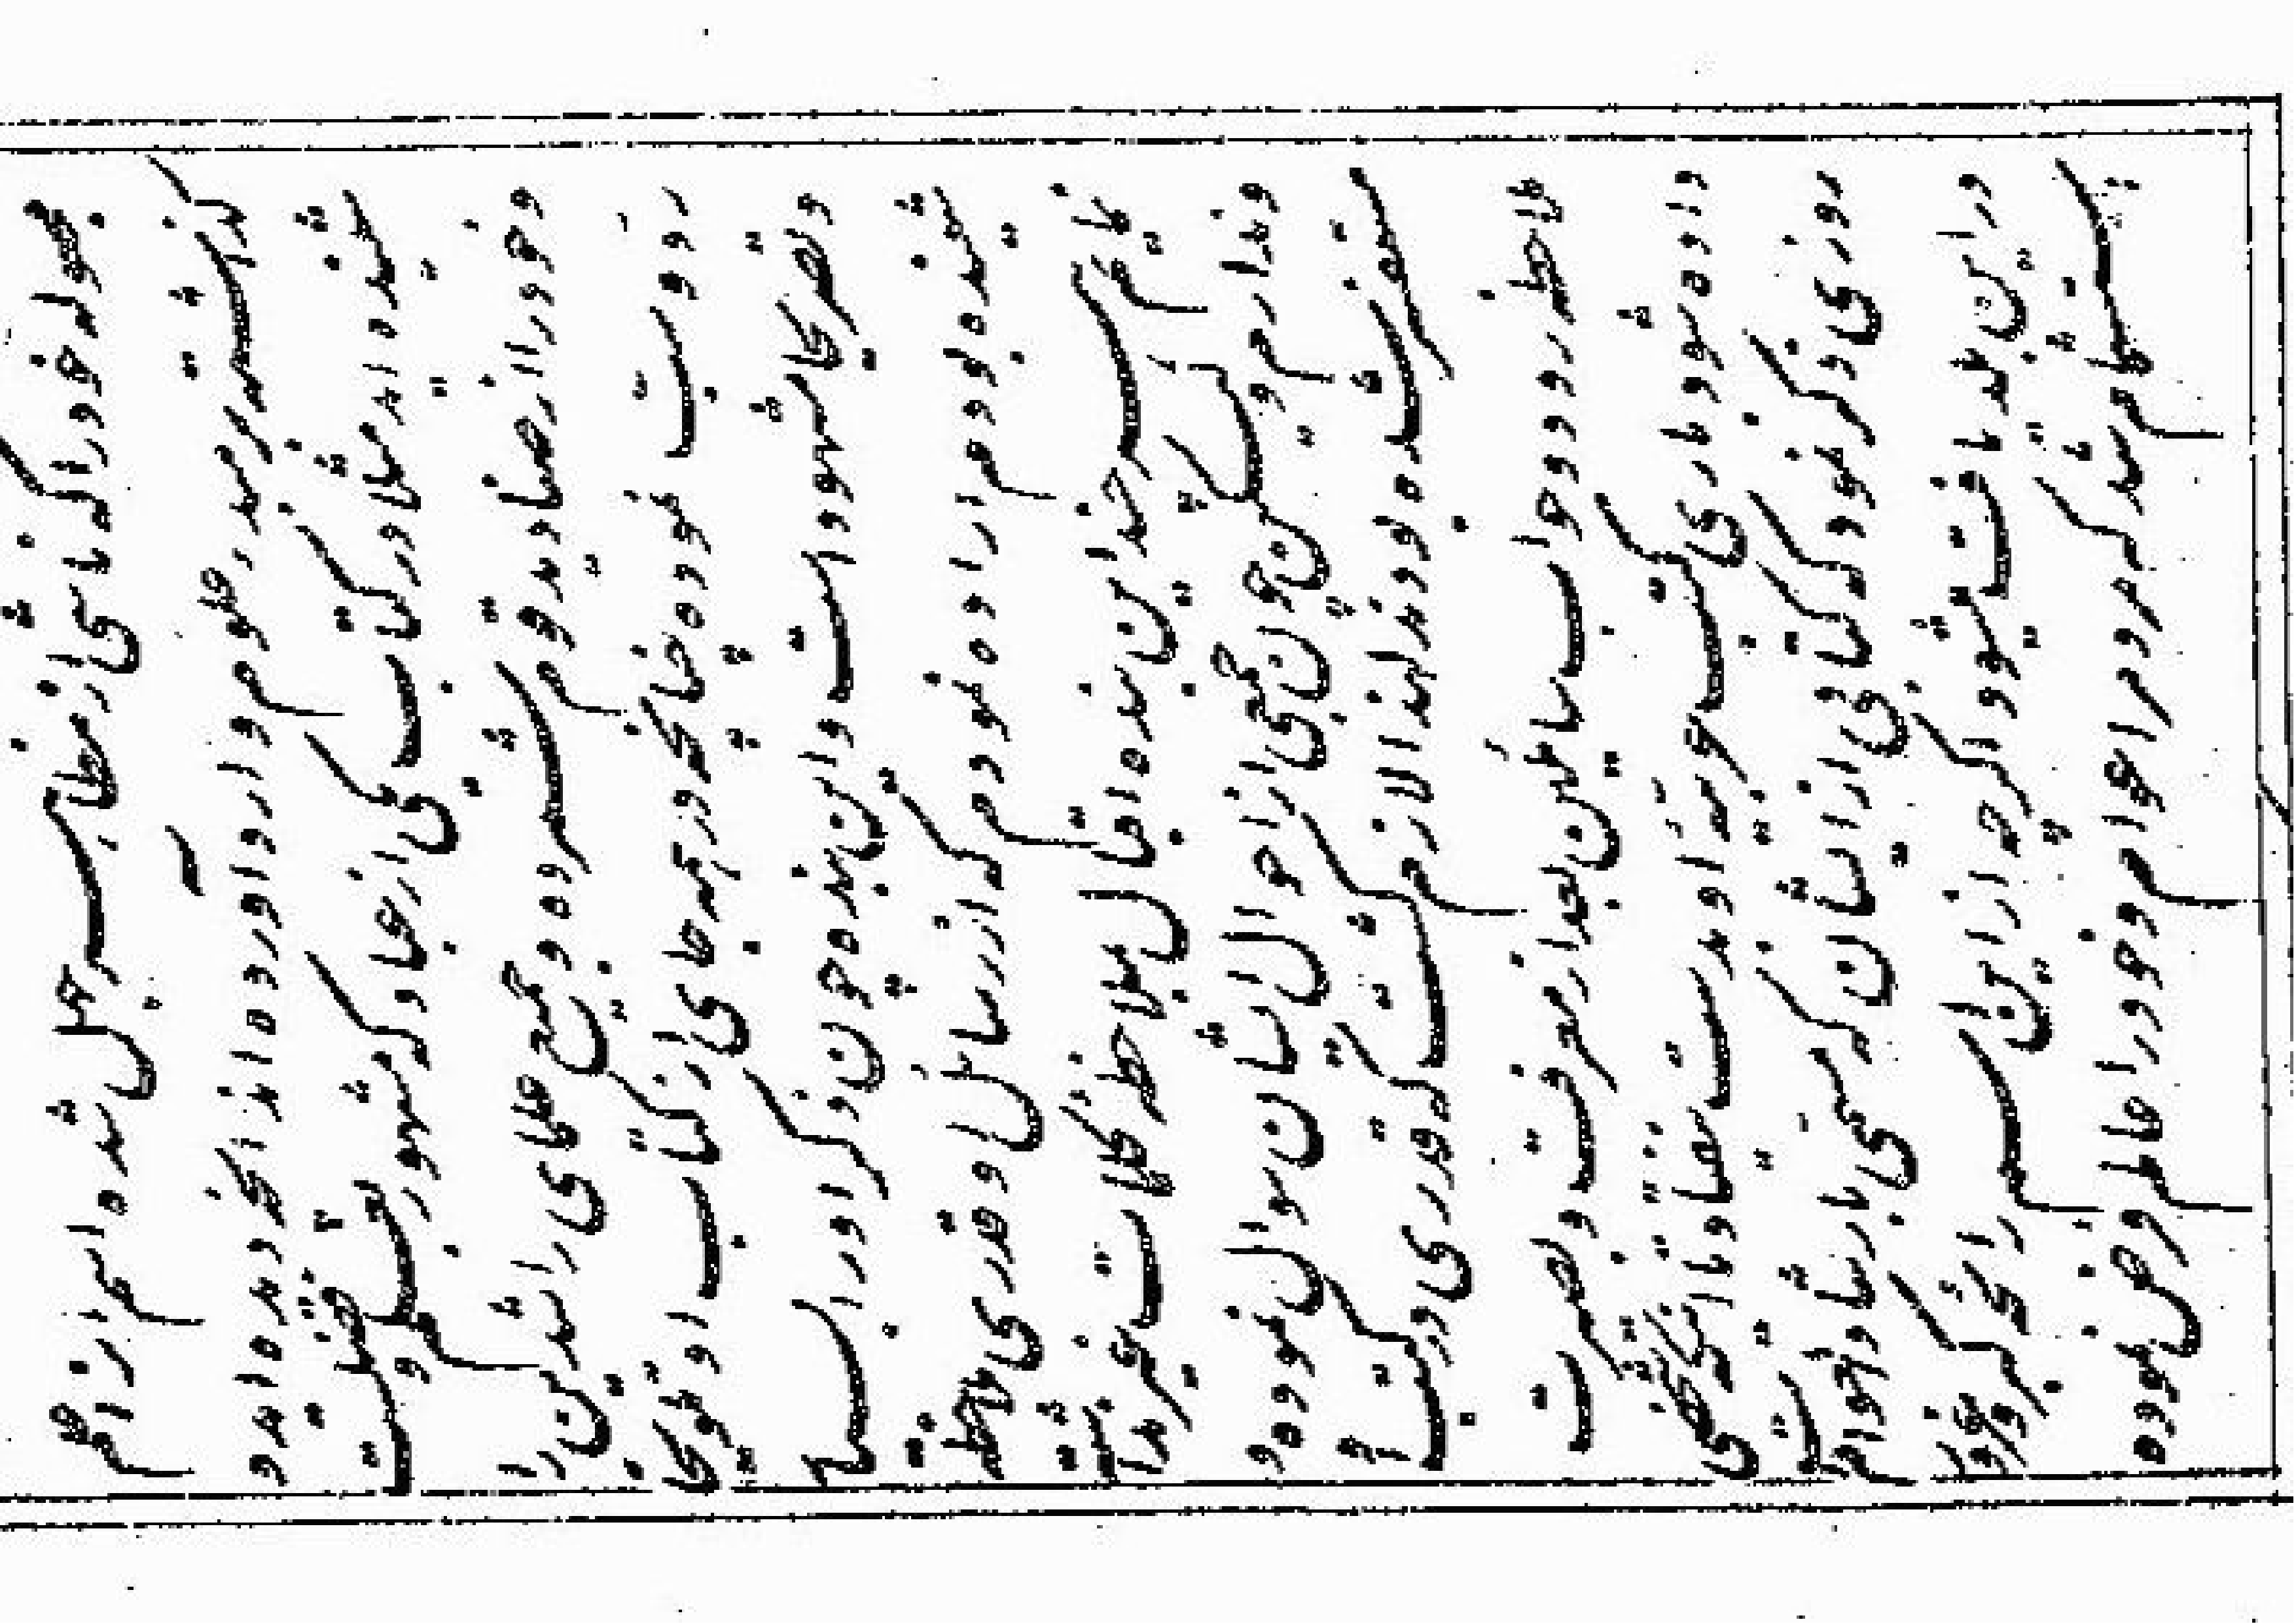 مجهوله خود را که ناشی از مظاهر جهل شده اسم آن را علم
گذاشته‌اند و بر مصدر علوم وارد آورده اند آنچه دیده اید و
شنیده اید مثلا در کتاب یکی از عباد که مشهور بعلم و فضلست
و خود را از صنادید قوم شمرده و جمیع علمای راشدین را
رد و سب نموده چنانچه در همه جای از کتاب او تلویحا
و تصریحا مشهود است و این بنده چون ذکر او را بسیار
شنیده بودم اراده نمودم که از رسائل او قدری ملاحظه
نمایم هر چند این بنده اقبال بملاحظه کلمات غیر نداشته
و ندارم ولکن چون جمعی از احوال ایشان سوال نموده و
مستفسر شده بودند لهذا لازم گشت که قدری در کتب او
ملاحظه رود و جواب سائلین بعد از معرفت و بصیرت
داده شود باری کتب عربیه او بدست نیفتاد تا اینکه شخصی
روزی ذکر نمود که کتابی از ایشان که مسمی بارشاد العوام است
در این بلد یافت میشود اگر چه از این اسم رائحه کبر و غرور
استشمام شد که مردم را عوام و خود را عالم فرض نموده